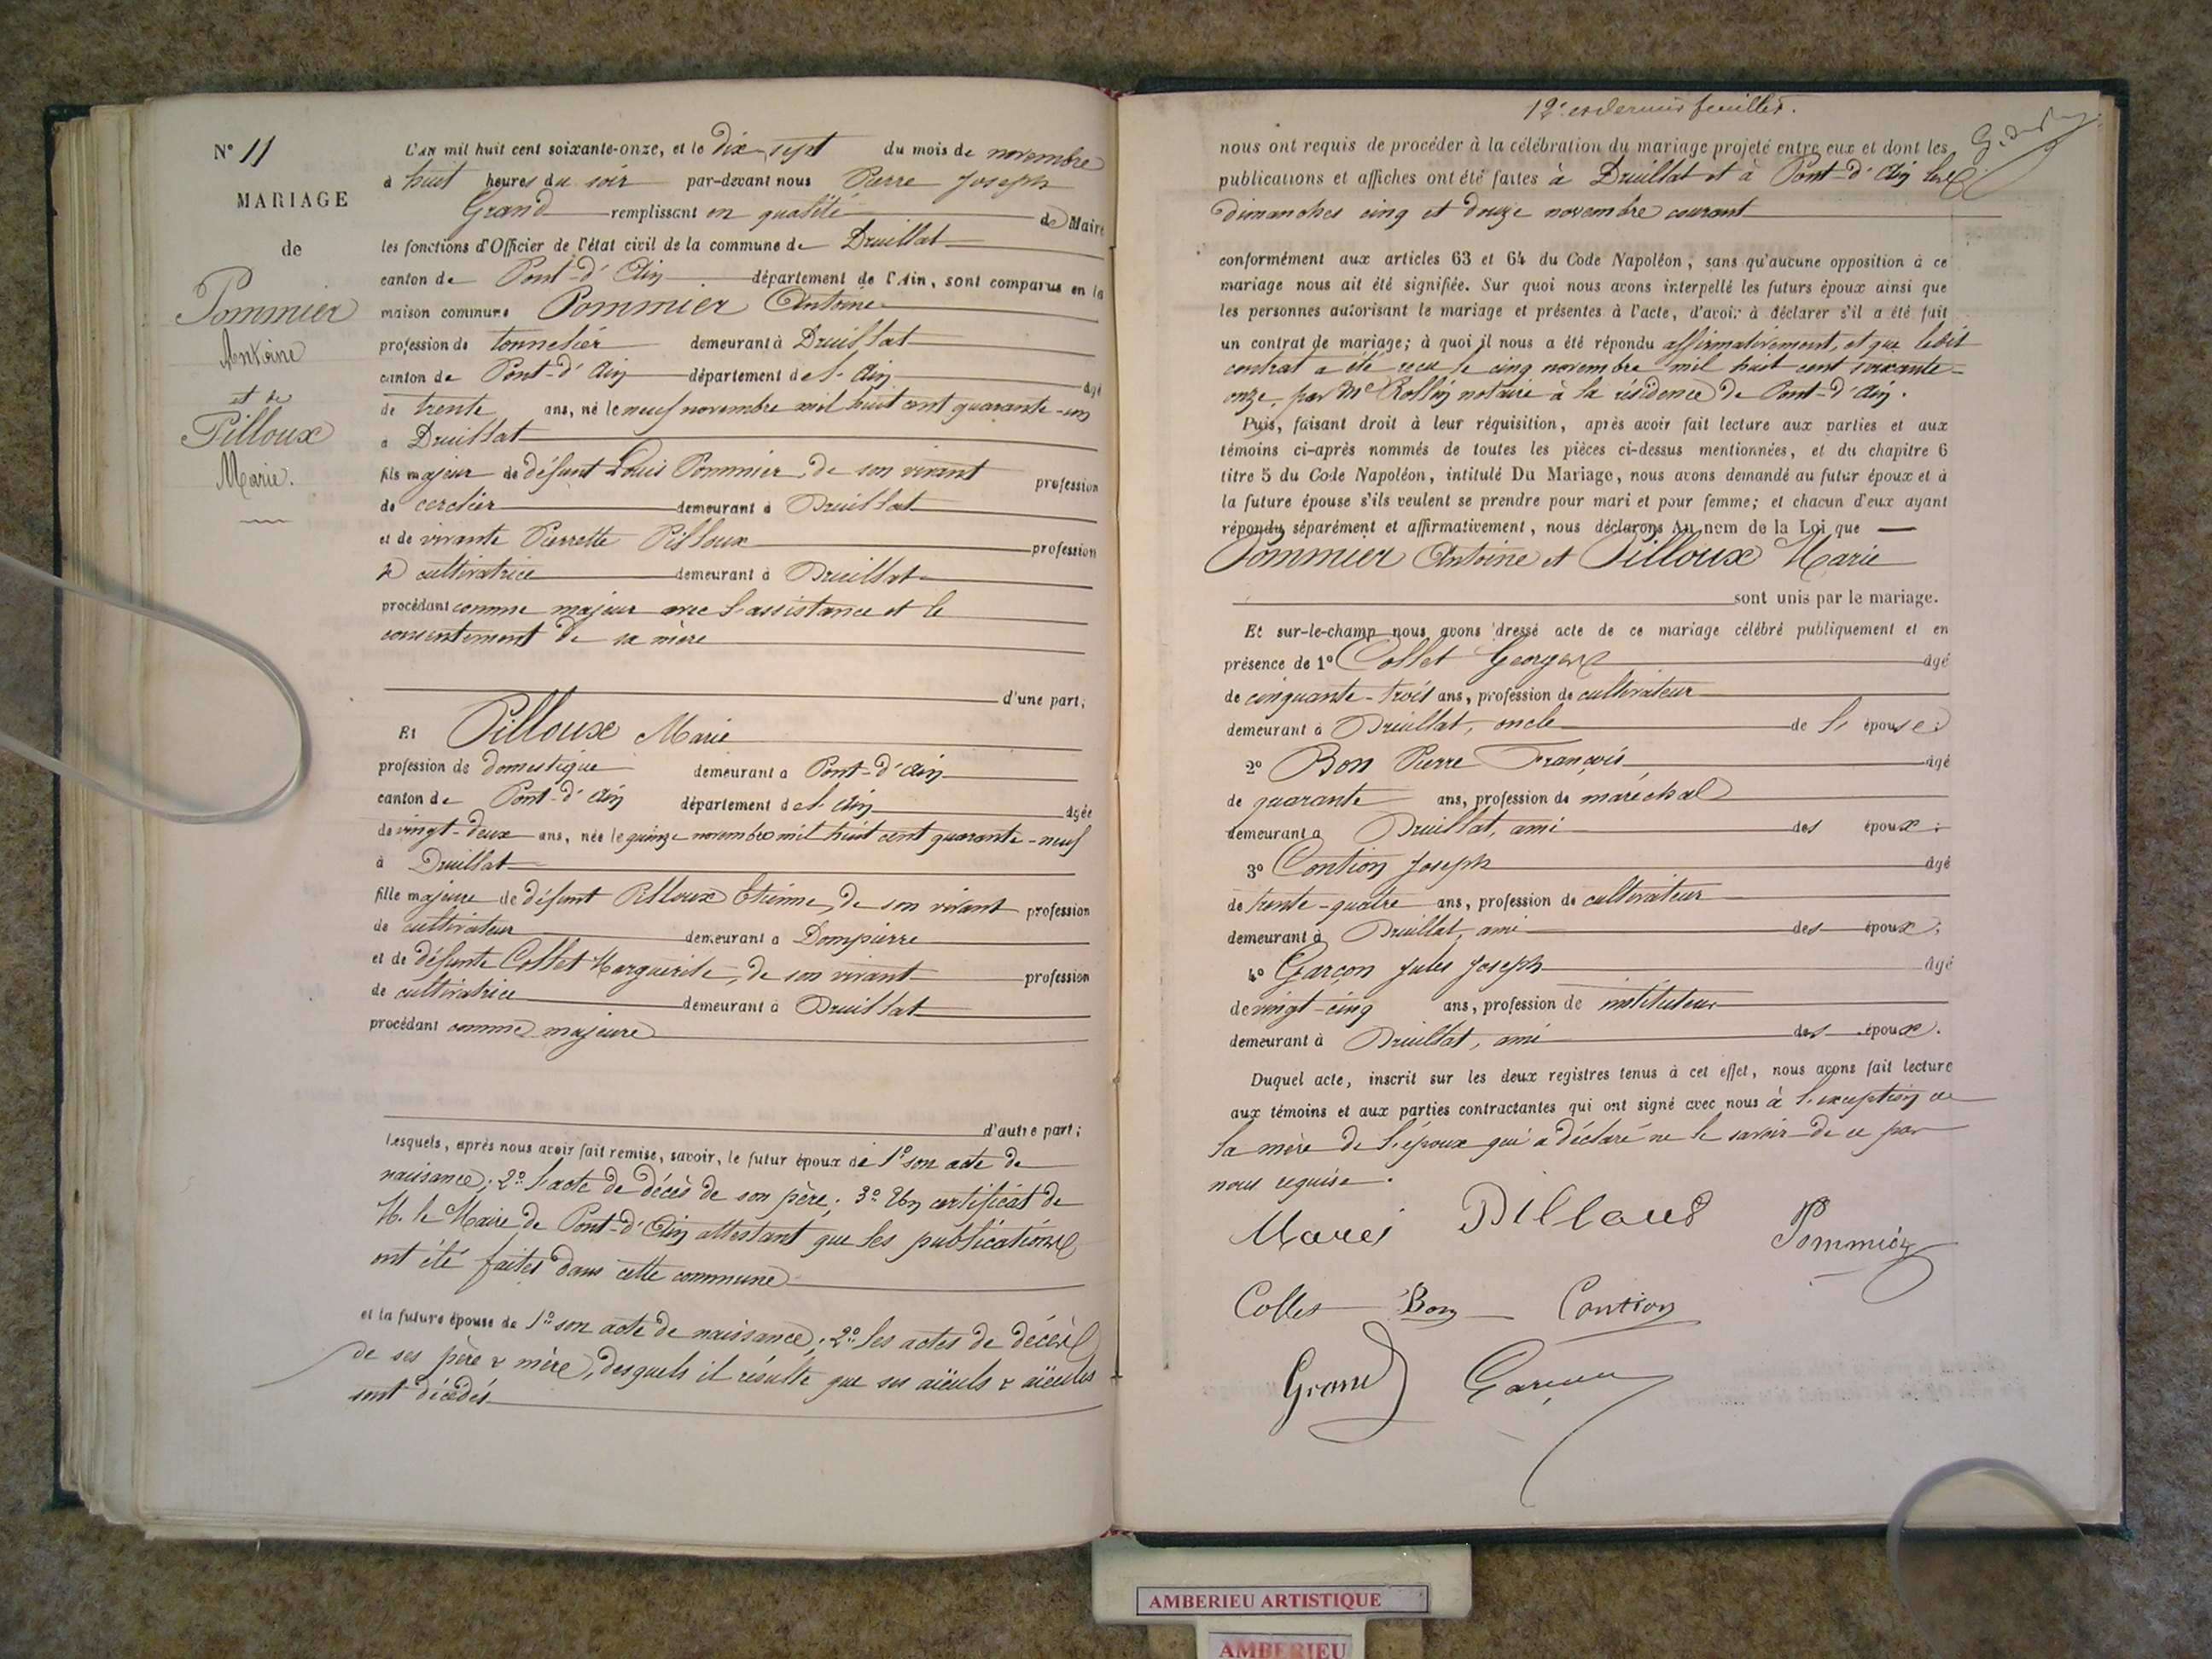 N° 11
MARIAGE
de
Pommier
Antoine
et de
Pilloux
Marie.
L'an mil huit cent soixante-onze, et le dix-sept du mois de novembre
à huit heures du soir par-devant nous Pierre Joseph
Grand remplissant en qualité de Maire
les fonctions d'Officier de l'état civil de la commune de Druillat
canton de Pont-d'Ain département de l'Ain, sont comparus en la
maison commune Pommier Antoine
profession de tonnelier demeurant à Druillat
canton de Pont-d'Ain département de l'Ain âgé
de trente ans, né le neuf novembre mil huit cent quarante-un
à Druillat
fils majeur de défunt Louis Pommier, de son vivant profession
de cerclier demeurant à Druillat
et de vivante Pierrette Pilloux profession
de cultivatrice demeurant à Druillat
procédant comme majeur avec l'assistance et le
consentement de sa mère
d'une part;
Et Pilloux Marie
profession de domestique demeurant à Pont-d'Ain
canton de Pont-d'Ain département de l'Ain âgée
de vingt-deux ans, née le quinze novembre mil huit cent quarante-neuf
à Druillat
fille majeure de défunt Pilloux Etienne, de son vivant profession
de cultivateur demeurant à Dompierre
et de défunte Collet Marguerite, de son vivant profession
de cultivatrice demeurant à Druillat
procédant comme majeure
d'autre part;
Lesquels, après nous avoir fait remise, savoir, le futur époux de 1° son acte de
naissance; 2° l'acte de décès de son père; 3° Un certificat de
M. le Maire de Pont-d'Ain attestant que les publications
ont été faites dans cette commune
et la future épouse de 1° son acte de naissance; 2° les actes de décès
de ses père & mère, desquels il résulte que ses aïeuls & aïeules
sont décédés
12e et dernier feuillet.
nous ont requis de procéder à la célébration du mariage projeté entre eux et dont les
publications et affiches ont été faites à Druillat et à Pont-d'Ain les
dimanches cinq et douze novembre courant
conformément aux articles 63 et 64 du Code Napoléon, sans qu'aucune opposition à ce
mariage nous ait été signifiée. Sur quoi nous avons interpellé les futurs époux ainsi que
les personnes autorisant le mariage et présentes à l'acte, d'avoir à déclarer s'il a été fait
un contrat de mariage; à quoi il nous a été répondu affirmativement, et que ledit
contrat a été reçu le cinq novembre mil huit cent soixante-
onze, par Me Rollin notaire à la résidence de Pont-d'Ain.
Puis, faisant droit à leur réquisition, après avoir fait lecture aux parties et aux
témoins ci-après nommés de toutes les pièces ci-dessus mentionnées, et du chapitre 6
titre 5 du Code Napoléon, intitulé Du Mariage, nous avons demandé au futur époux et à
la future épouse s'ils veulent se prendre pour mari et pour femme; et chacun d'eux ayant
répondu séparément et affirmativement, nous déclarons Au nom de la Loi que
Pommier Antoine et Pilloux Marie
sont unis par le mariage.
Et sur-le-champ nous avons dressé acte de ce mariage célébré publiquement et en
présence de 1° Collet Georges âgé
de cinquante-trois ans, profession de cultivateur
demeurant à Druillat, oncle de l'épouse;
2° Bon Pierre François âgé
de quarante ans, profession de maréchal
demeurant à Druillat, ami des époux;
3° Contion Joseph âgé
de trente-quatre ans, profession de cultivateur
demeurant à Druillat, ami des époux;
4° Garçon Jules Joseph âgé
de vingt-cinq ans, profession de instituteur
demeurant à Druillat, ami des époux.
Duquel acte, inscrit sur les deux registres tenus à cet effet, nous avons fait lecture
aux témoins et aux parties contractantes qui ont signé avec nous à l'exception de
la mère de l'époux qui a déclaré ne le savoir de ce par
nous requise.
Pommier
Collet Bon Contion
Grand Garçon
AMBERIEU ARTISTIQUE
AMBERIEU